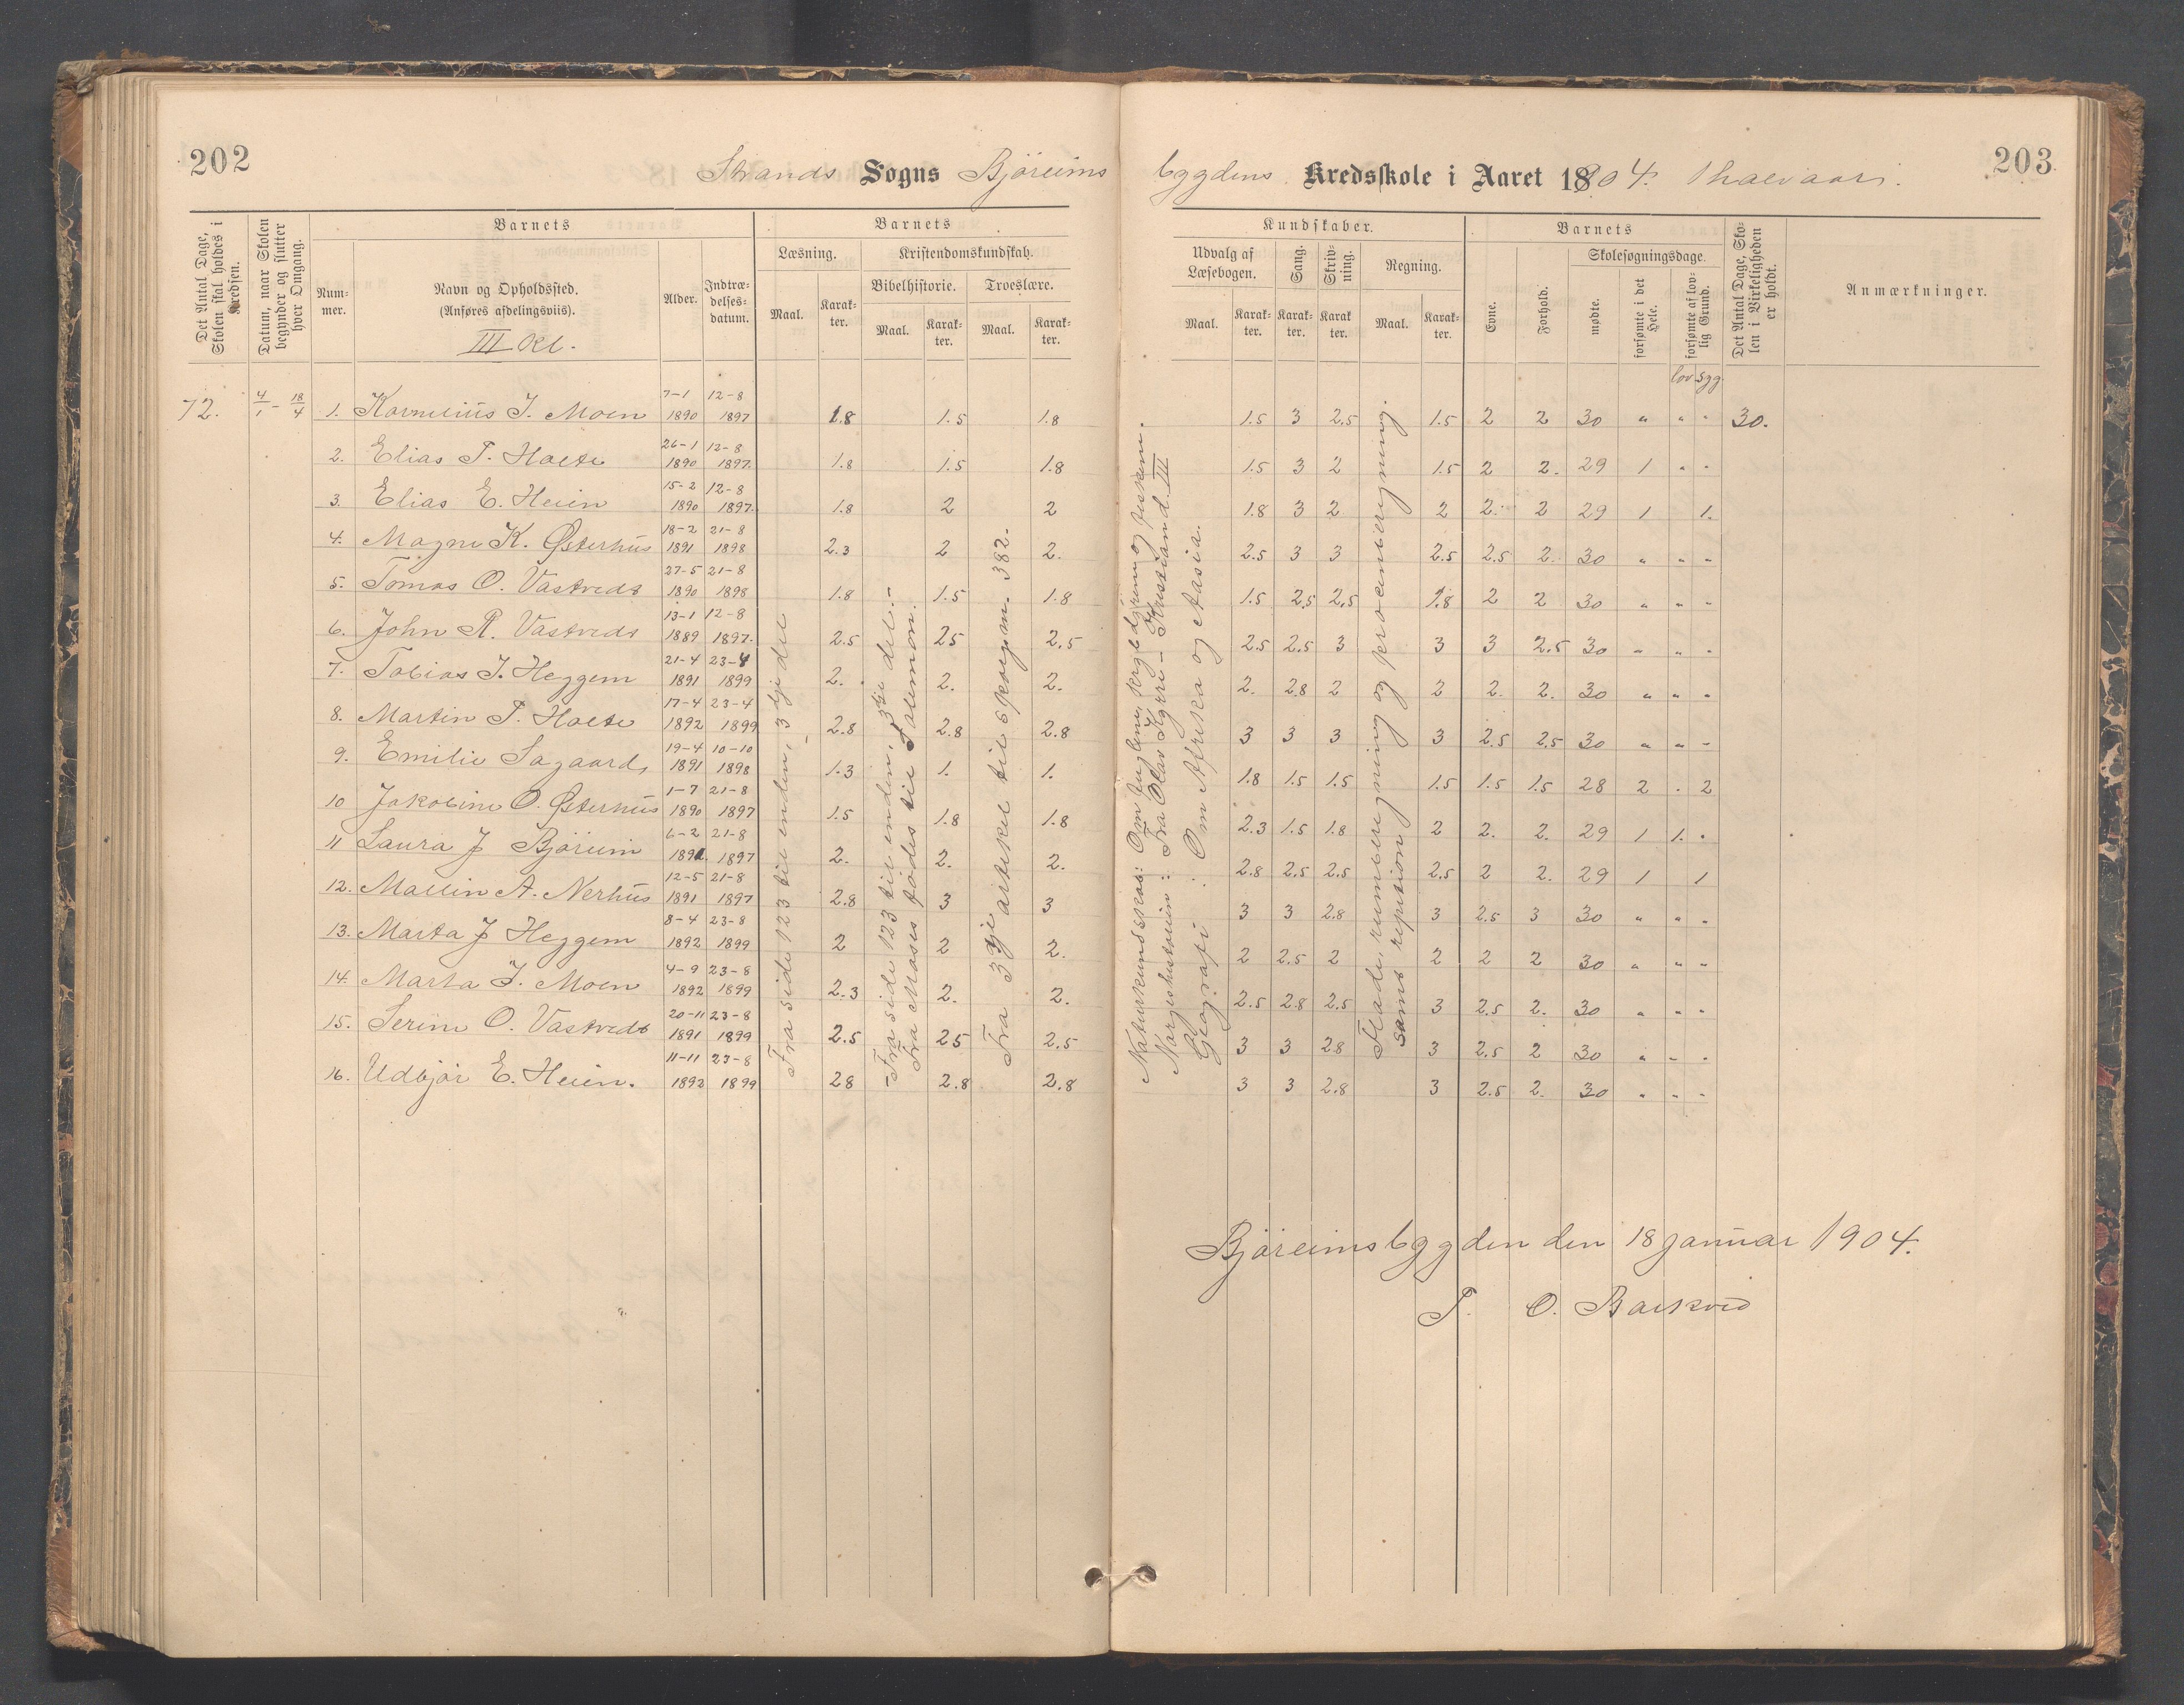 202
Strands Sogns Björeims
bygdens Kredsskole i Aaret 1804. 1 halvaar.
203
Det Antal Dage, Skolen skal holdes i Kredsen.
Datum, naar Skolen begynder og slutter hver Omgang.
Barnets
Nummer.
Navn og Opholdssted.
(Anføres afdelingsviis).
III Kl.
Alder.
Indtrædelsesdatum.
Barnets
Læsning.
Maal.
Karakter.
Kristendomskundskab.
Bibelhistorie.
Maal.
Karakter.
Troeslære.
Maal.
Karakter.
Kundskaber.
Udvalg af Læsebogen.
Maal.
Karakter.
Sang.
Karakter.
Skrivning.
Karakter.
Regning.
Maal.
Karakter.
Barnets
Evne.
Forhold.
Skolesøgningsdage.
mødte.
forsømte i det Hele.
forsømte af lovlig Grund.
lov. syg.
Det Antal Dage, Skolen i Virkeligheden er holdt.
Anmærkninger.
72. 4/1 - 18/4 1. Kornelius J. Moen 7-1 1890 12-8 1897 1.8 1.5 1.8 1.5 3 2.5 1.5 2 2 30 " " " 30.
2. Elias T. Holte 26-1 1890 12-8 1897. 1.8 1.5 1.8 1.5 3 2 1.5 2 2. 29 1 " "
3. Elias E. Heien 15-2 1890 12-8 1897. 1.8 2 2 1.8 3 2 2 2. 2 29 1 1.
4. Magni K. Østerhus 18-2 1891 21-8 1898 2.3 2 2. 2.5 3 3 2.5 2.5 2. 30 " " "
5. Tomas O. Vastveds 27-5 1890 21-8 1898 1.8 1.5 1.8 1.5 2.5 2.5 1.8 2 2 30 " " "
6. John R. Vastveds 13-1 1889 12-8 1897. 2.5 25 2.5 2.5 2.5 3 3 3 2.5 30 " " "
7. Tobias J. Heggem 21-4 1891 23-4 1899 2. 2. 2. 2. 2.8 2 2 2. 2. 30 " " "
8. Martin T. Holte 17-4 1892 23-4 1899 2.8 2.8 2.8 3 3 3 3 2.5 2.5 30 " " "
9. Emilie Sagaard 19-4 1891 10-10 1898 1.3 1. 1. 1.8 1.5 1.5 1.5 1.5 1.5 28 2 . 2
10 Jakobine O. Østerhus 1-7 1890 21-8 1897 1.5 1.8 1.8 2.3 1.5 1.8 2 2. 2. 29 1 1. .
11 Laura J Björeim 6-2 1891. 21-8 1897 2. 2. 2. 2.8 2.5 2.5 2.5 2 2. 29 1 1
12. Mallin A. Nerhus 12-5 1891 21-8 1897 2.8 3 3 3 3 2.8 3 2.5 3 30 " " "
13. Marta J Heggem 8-4 1892 23-8 1899 2 2 2. 2 2.5 2 2 2 2 30 " " "
14. Marta J. Moen 4-9 1892 23-8 1899 2.3 2. 2. 2.5 2.8 2.5 3 2.5 2. 30 " " "
15. Serine O. Vastveds 20-11 1891 23-8 1899 2.5 25 2.5 3 3 28 3 2.5 2 30 " " "
16. Udbjör E. Heien. 11-11 1892 23-8 1899 28 2.8 2.8 3 3 2.8 3 2.5 2. 30 " " "
Fra side 123 til enden, 3dje del
Fra side 123 til enden, 3die del.
Fra Moses födes til Salomon.
Fra 3dje artikel til spørgsm. 382.
Naturkundskab: Om fuglene, krybdyrene og fiskene.
Norgeshistorien: Fra Olav Kyrre - Kristian d. III
Geografi: Om Afrika og Aasia.
Flade, rumberegning og procentberegning samt repition
Björeimsbygden den 18 januar 1904.
T. O. Barkved